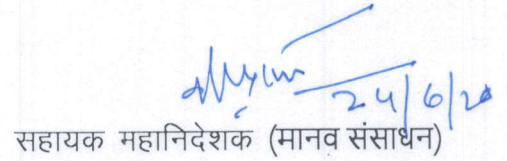 24/6/20
सहायक महानिदेशक (मानव संसाधन)